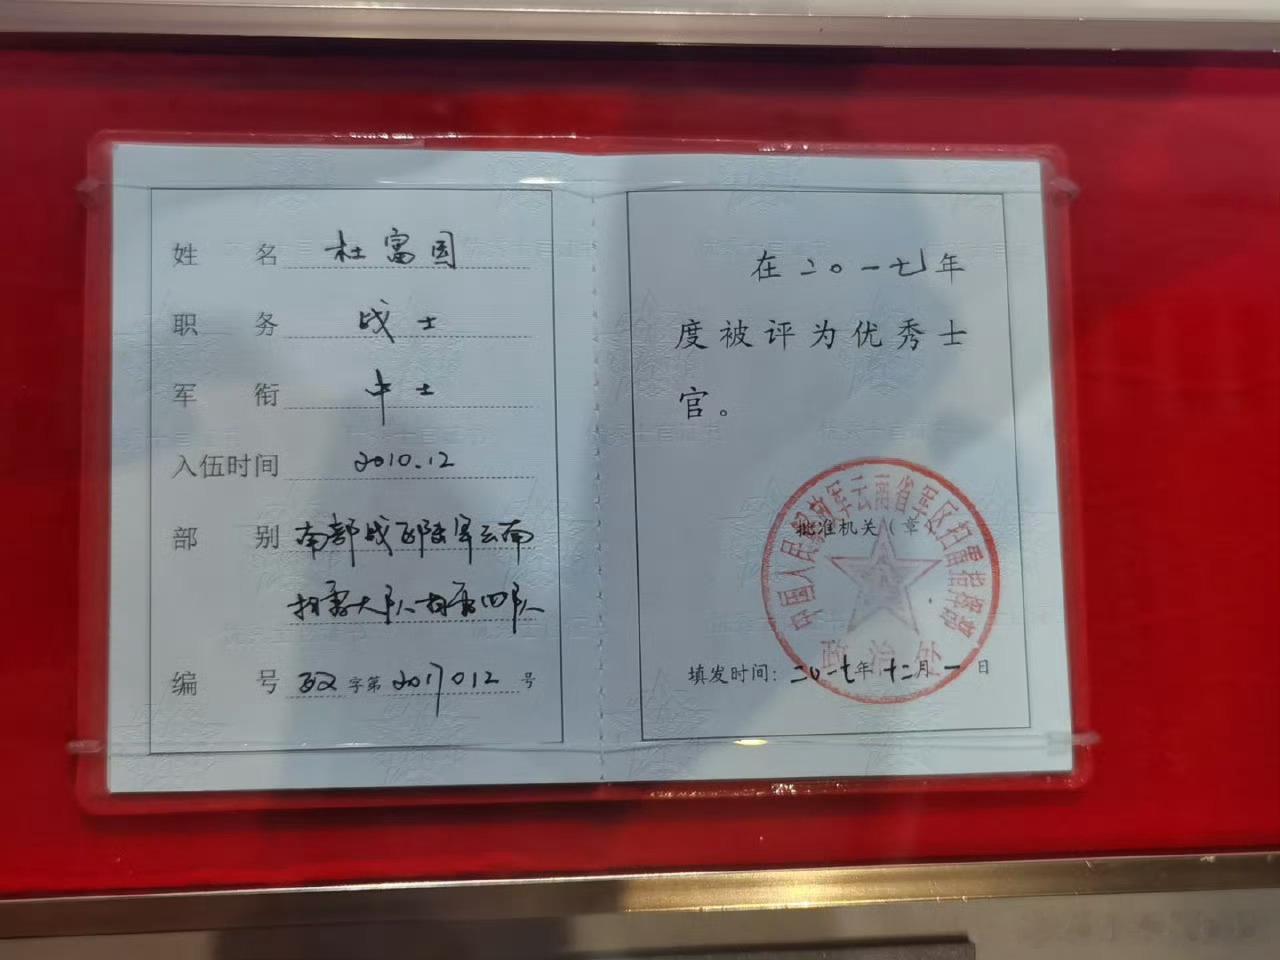 姓 名 杜富国
职 务 战士
军 衔 中士
入伍时间 2010.12
部 别 南部战区陆军云南
扫雷大队扫雷四队
编 号 政 字第 2017012 号
在二〇一七年
度被评为优秀士
官。
中国人民解放军云南省军区扫雷指挥部
批准机关（章
政治处
填发时间：二〇一七年十二月一日